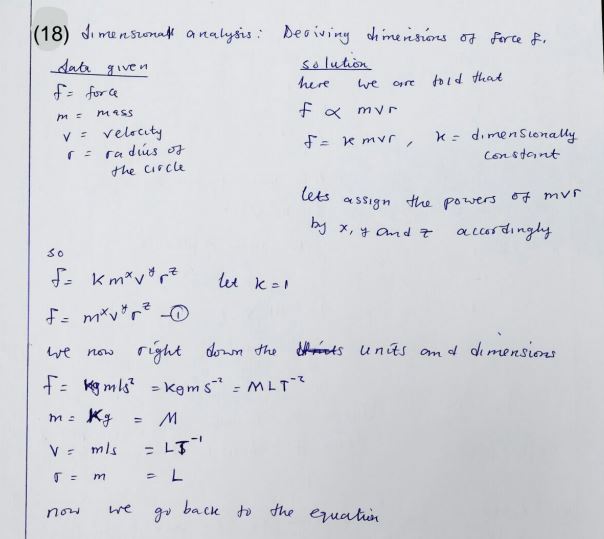 (18) dimensional analysis: Deriving dimensions of force f.
data given
f = force
m = mass
v = velocity
r = radius of
the circle
solution
here we are told that
f ∝ mvr
f = k mvr, k = dimensionally
constant
lets assign the powers of mvr
by x, y and z accordingly
so
f = k mˣ vʸ rᶻ let k = 1
f = mˣ vʸ rᶻ —①
we now right down the units and dimensions
f = kg m/s² = kg m s⁻² = MLT⁻²
m = kg = M
v = m/s = LT⁻¹
r = m = L
now we go back to the equation